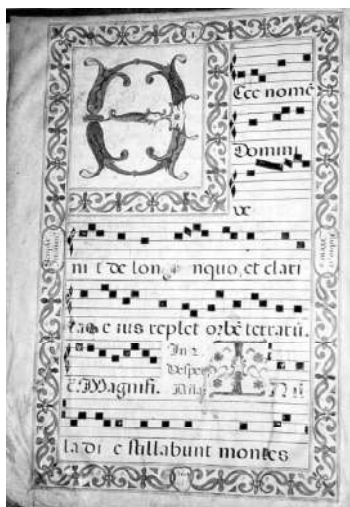 Ecce nomē
Domini
ve
nit de longinquo, et clari
tas e ius replet orbē terrarū.
ē. Magnifi. In 2. Vesper. In il
la di e stillabunt montes